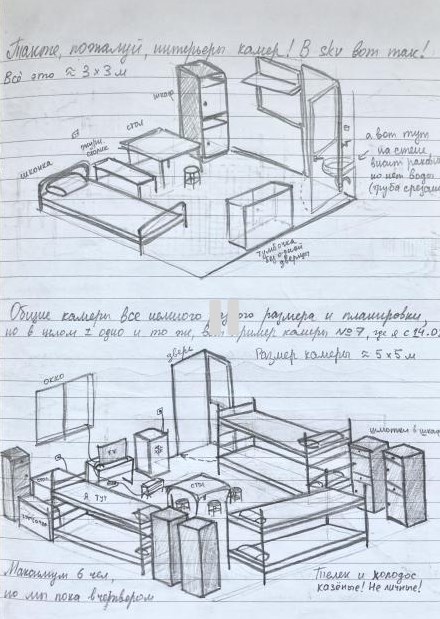 Также, пожалуй, интерьеры камер! В sku вот так!
Всё это ≈ 3 х 3 м
шкаф
стол
шконка
а вот тут
на стене
висит раковина
но нет воды
(труба срезана
тумбочка
без одной
дверцы
Общие камеры все немного размера и планировки,
но в целом ± одно и то же, камеры №7, где я с 14.0
Размер камеры ≈ 5 х 5 м
дверь
окно
TV
шмотки в шкафу
стол
Я тут
Максимум 6 чел,
но мы пока вчетвером
Телек и холодос
казёные! Не личные!